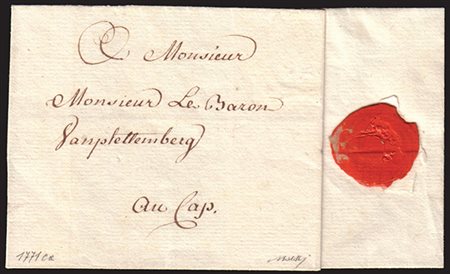 A Monsieur
Monsieur Le Baron
Vanplettemberg
Au Cap.
1771